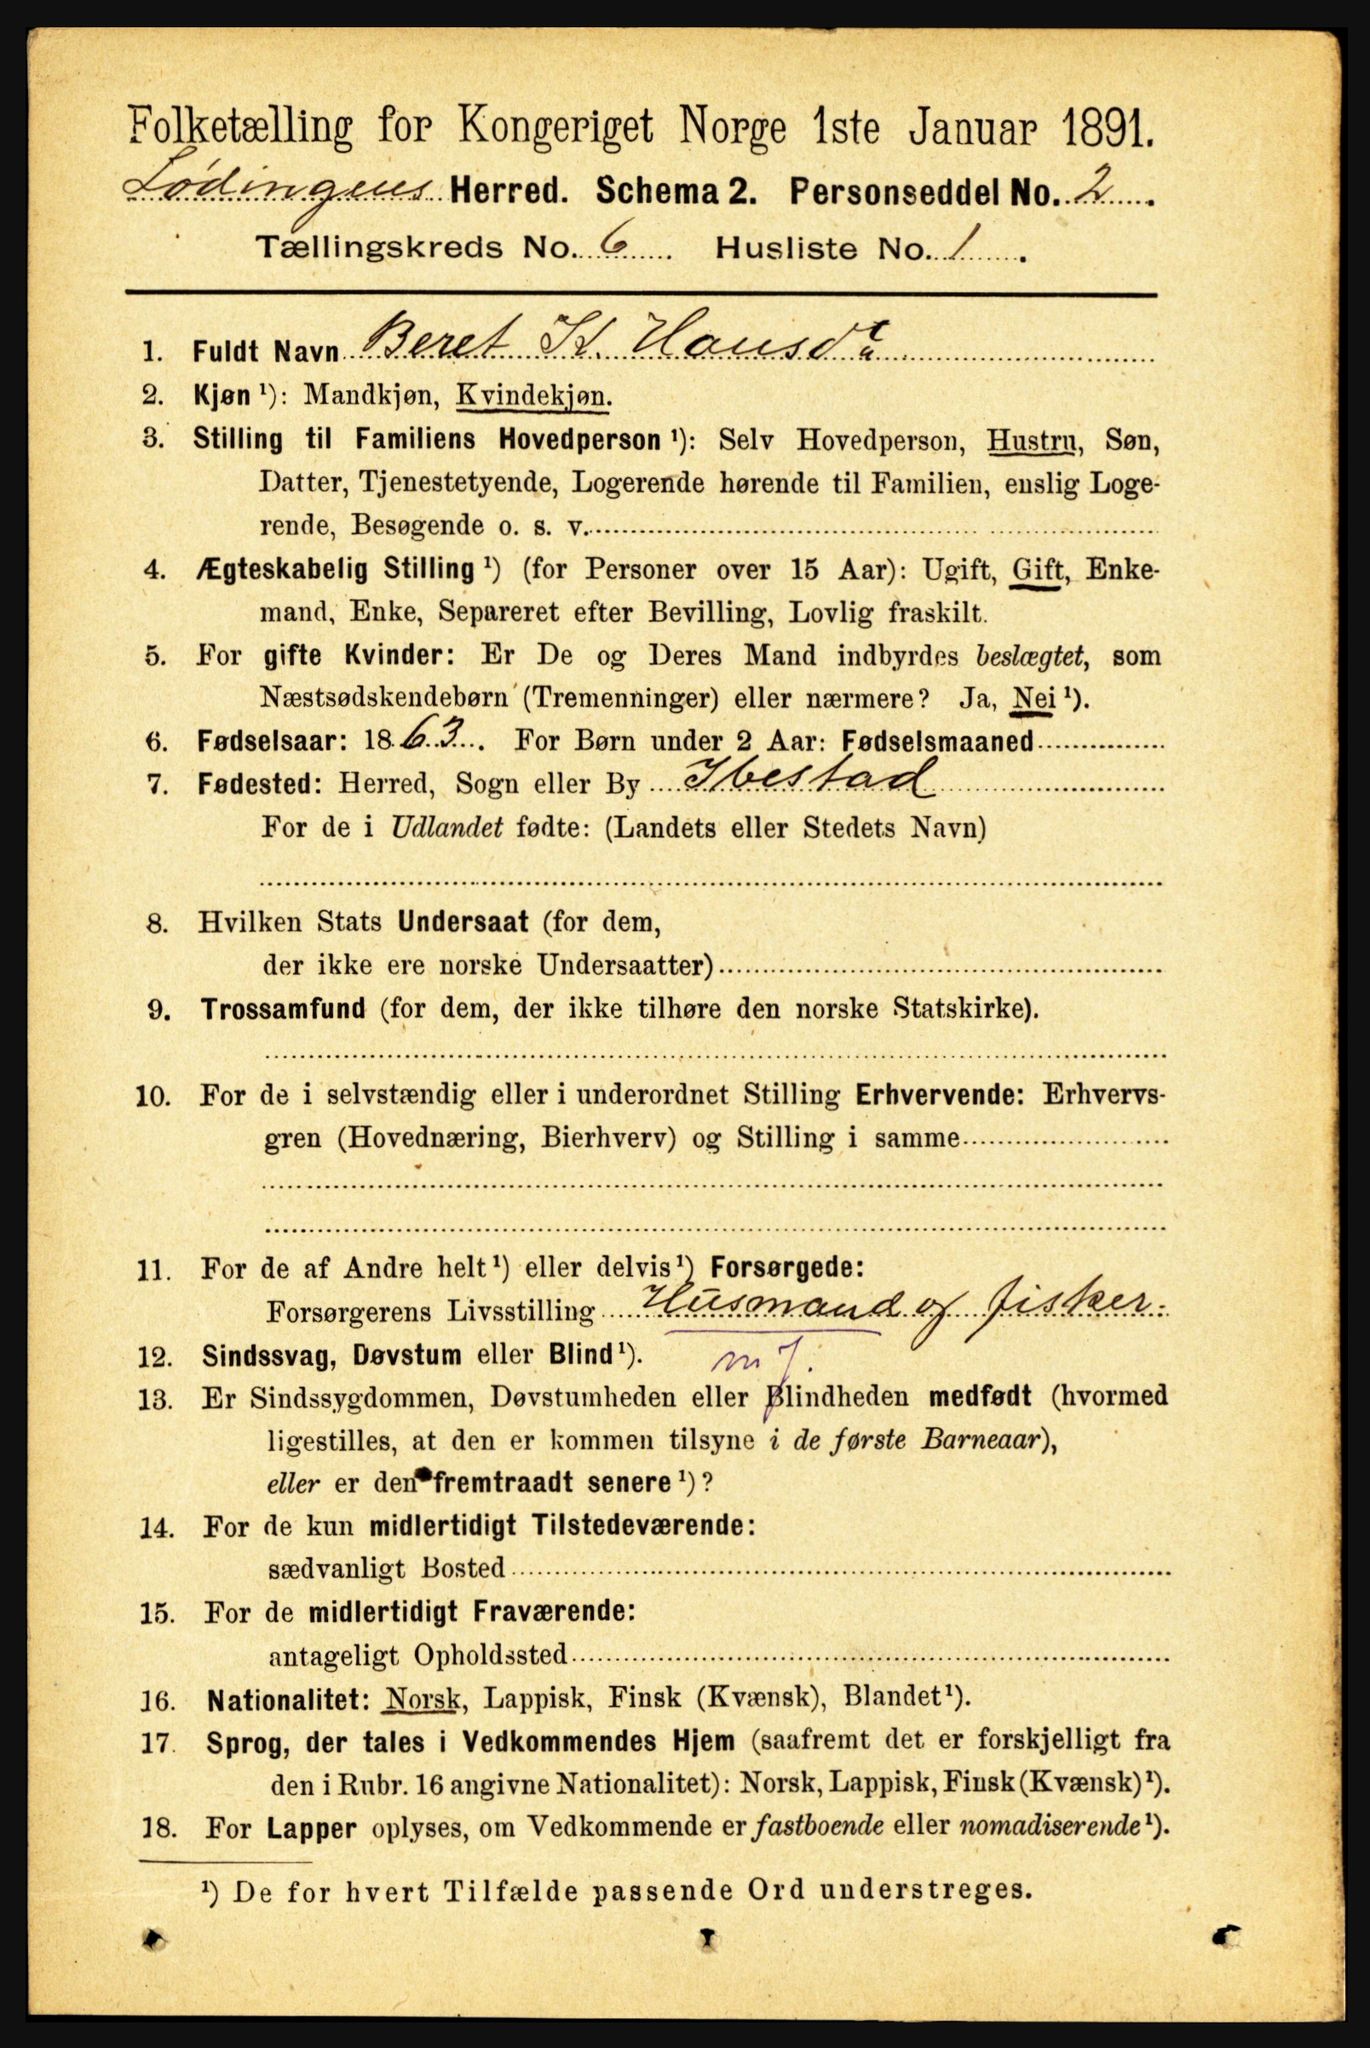 Folketælling for Kongeriget Norge 1ste Januar 1891.
Lødingens Herred. Schema 2. Personseddel No. 2.
Tællingskreds No. 6. Husliste No. 1.
1. Fuldt Navn Beret K. Hansda
2. Kjøn ¹): Mandkjøn, Kvindekjøn.
3. Stilling til Familiens Hovedperson ¹): Selv Hovedperson, Hustru, Søn,
Datter, Tjenestetyende, Logerende hørende til Familien, enslig Loge-
rende, Besøgende o. s. v.
4. Ægteskabelig Stilling ¹) (for Personer over 15 Aar): Ugift, Gift, Enke-
mand, Enke, Separeret efter Bevilling, Lovlig fraskilt.
5. For gifte Kvinder: Er De og Deres Mand indbyrdes beslægtet, som
Næstsødskendebørn (Tremenninger) eller nærmere? Ja, Nei ¹).
6. Fødselsaar: 1863. For Børn under 2 Aar: Fødselsmaaned
7. Fødested: Herred, Sogn eller By Ibestad
For de i Udlandet fødte: (Landets eller Stedets Navn)
8. Hvilken Stats Undersaat (for dem,
der ikke ere norske Undersaatter)
9. Trossamfund (for dem, der ikke tilhøre den norske Statskirke).
10. For de i selvstændig eller i underordnet Stilling Erhvervende: Erhvervs-
gren (Hovednæring, Bierhverv) og Stilling i samme
11. For de af Andre helt ¹) eller delvis ¹) Forsørgede:
Forsørgerens Livsstilling Husmand og fisker.
12. Sindssvag, Døvstum eller Blind ¹). m J.
13. Er Sindssygdommen, Døvstumheden eller Blindheden medfødt (hvormed
ligestilles, at den er kommen tilsyne i de første Barneaar),
eller er den fremtraadt senere ¹)?
14. For de kun midlertidigt Tilstedeværende:
sædvanligt Bosted
15. For de midlertidigt Fraværende:
antageligt Opholdssted
16. Nationalitet: Norsk, Lappisk, Finsk (Kvænsk), Blandet ¹).
17. Sprog, der tales i Vedkommendes Hjem (saafremt det er forskjelligt fra
den i Rubr. 16 angivne Nationalitet): Norsk, Lappisk, Finsk (Kvænsk) ¹).
18. For Lapper oplyses, om Vedkommende er fastboende eller nomadiserende ¹).
¹) De for hvert Tilfælde passende Ord understreges.